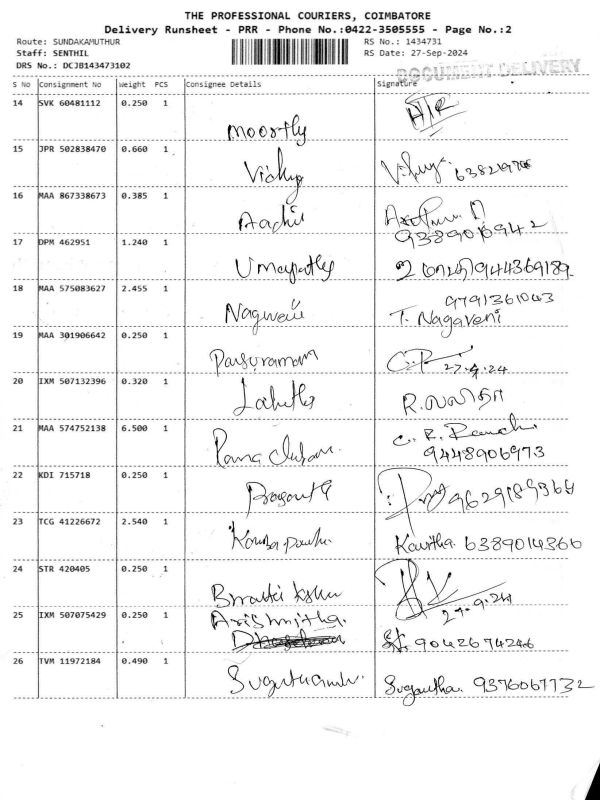 THE PROFESSIONAL COURIERS, COIMBATORE
Delivery Runsheet - PRR - Phone No.:0422-3505555 - Page No.:2
Route: SUNDAKAMUTHUR RS No.: 1434731
Staff: SENTHIL RS Date: 27-Sep-2024
DRS No.: DCJB143473102
DOCUMENT DELIVERY
S No Consignment No Weight PCS Consignee Details Signature
14 SVK 60481112 0.250 1
Moorthy
15 JPR 502838470 0.660 1
Vichy
16 MAA 867338673 0.385 1
9389019942
17 DPM 462951 1.240 1
Umapathy உமாபதி 944369189
18 MAA 575083627 2.455 1
9791361043
T. Nagaveni
19 MAA 301906642 0.250 1
Parsuramam
27.9.24
20 IXM 507132396 0.320 1
Lalitha R.லலிதா
21 MAA 574752138 6.500 1
C. R.
9448906973
22 KDI 715718 0.250 1
9629189364
23 TCG 41226672 2.540 1
Kavitha. 6389014366
24 STR 420405 0.250 1
27.9.24
25 IXM 507075429 0.250 1
Arishmitha.
9042674246
26 TVM 11972184 0.490 1
Sugantha. 9376067732